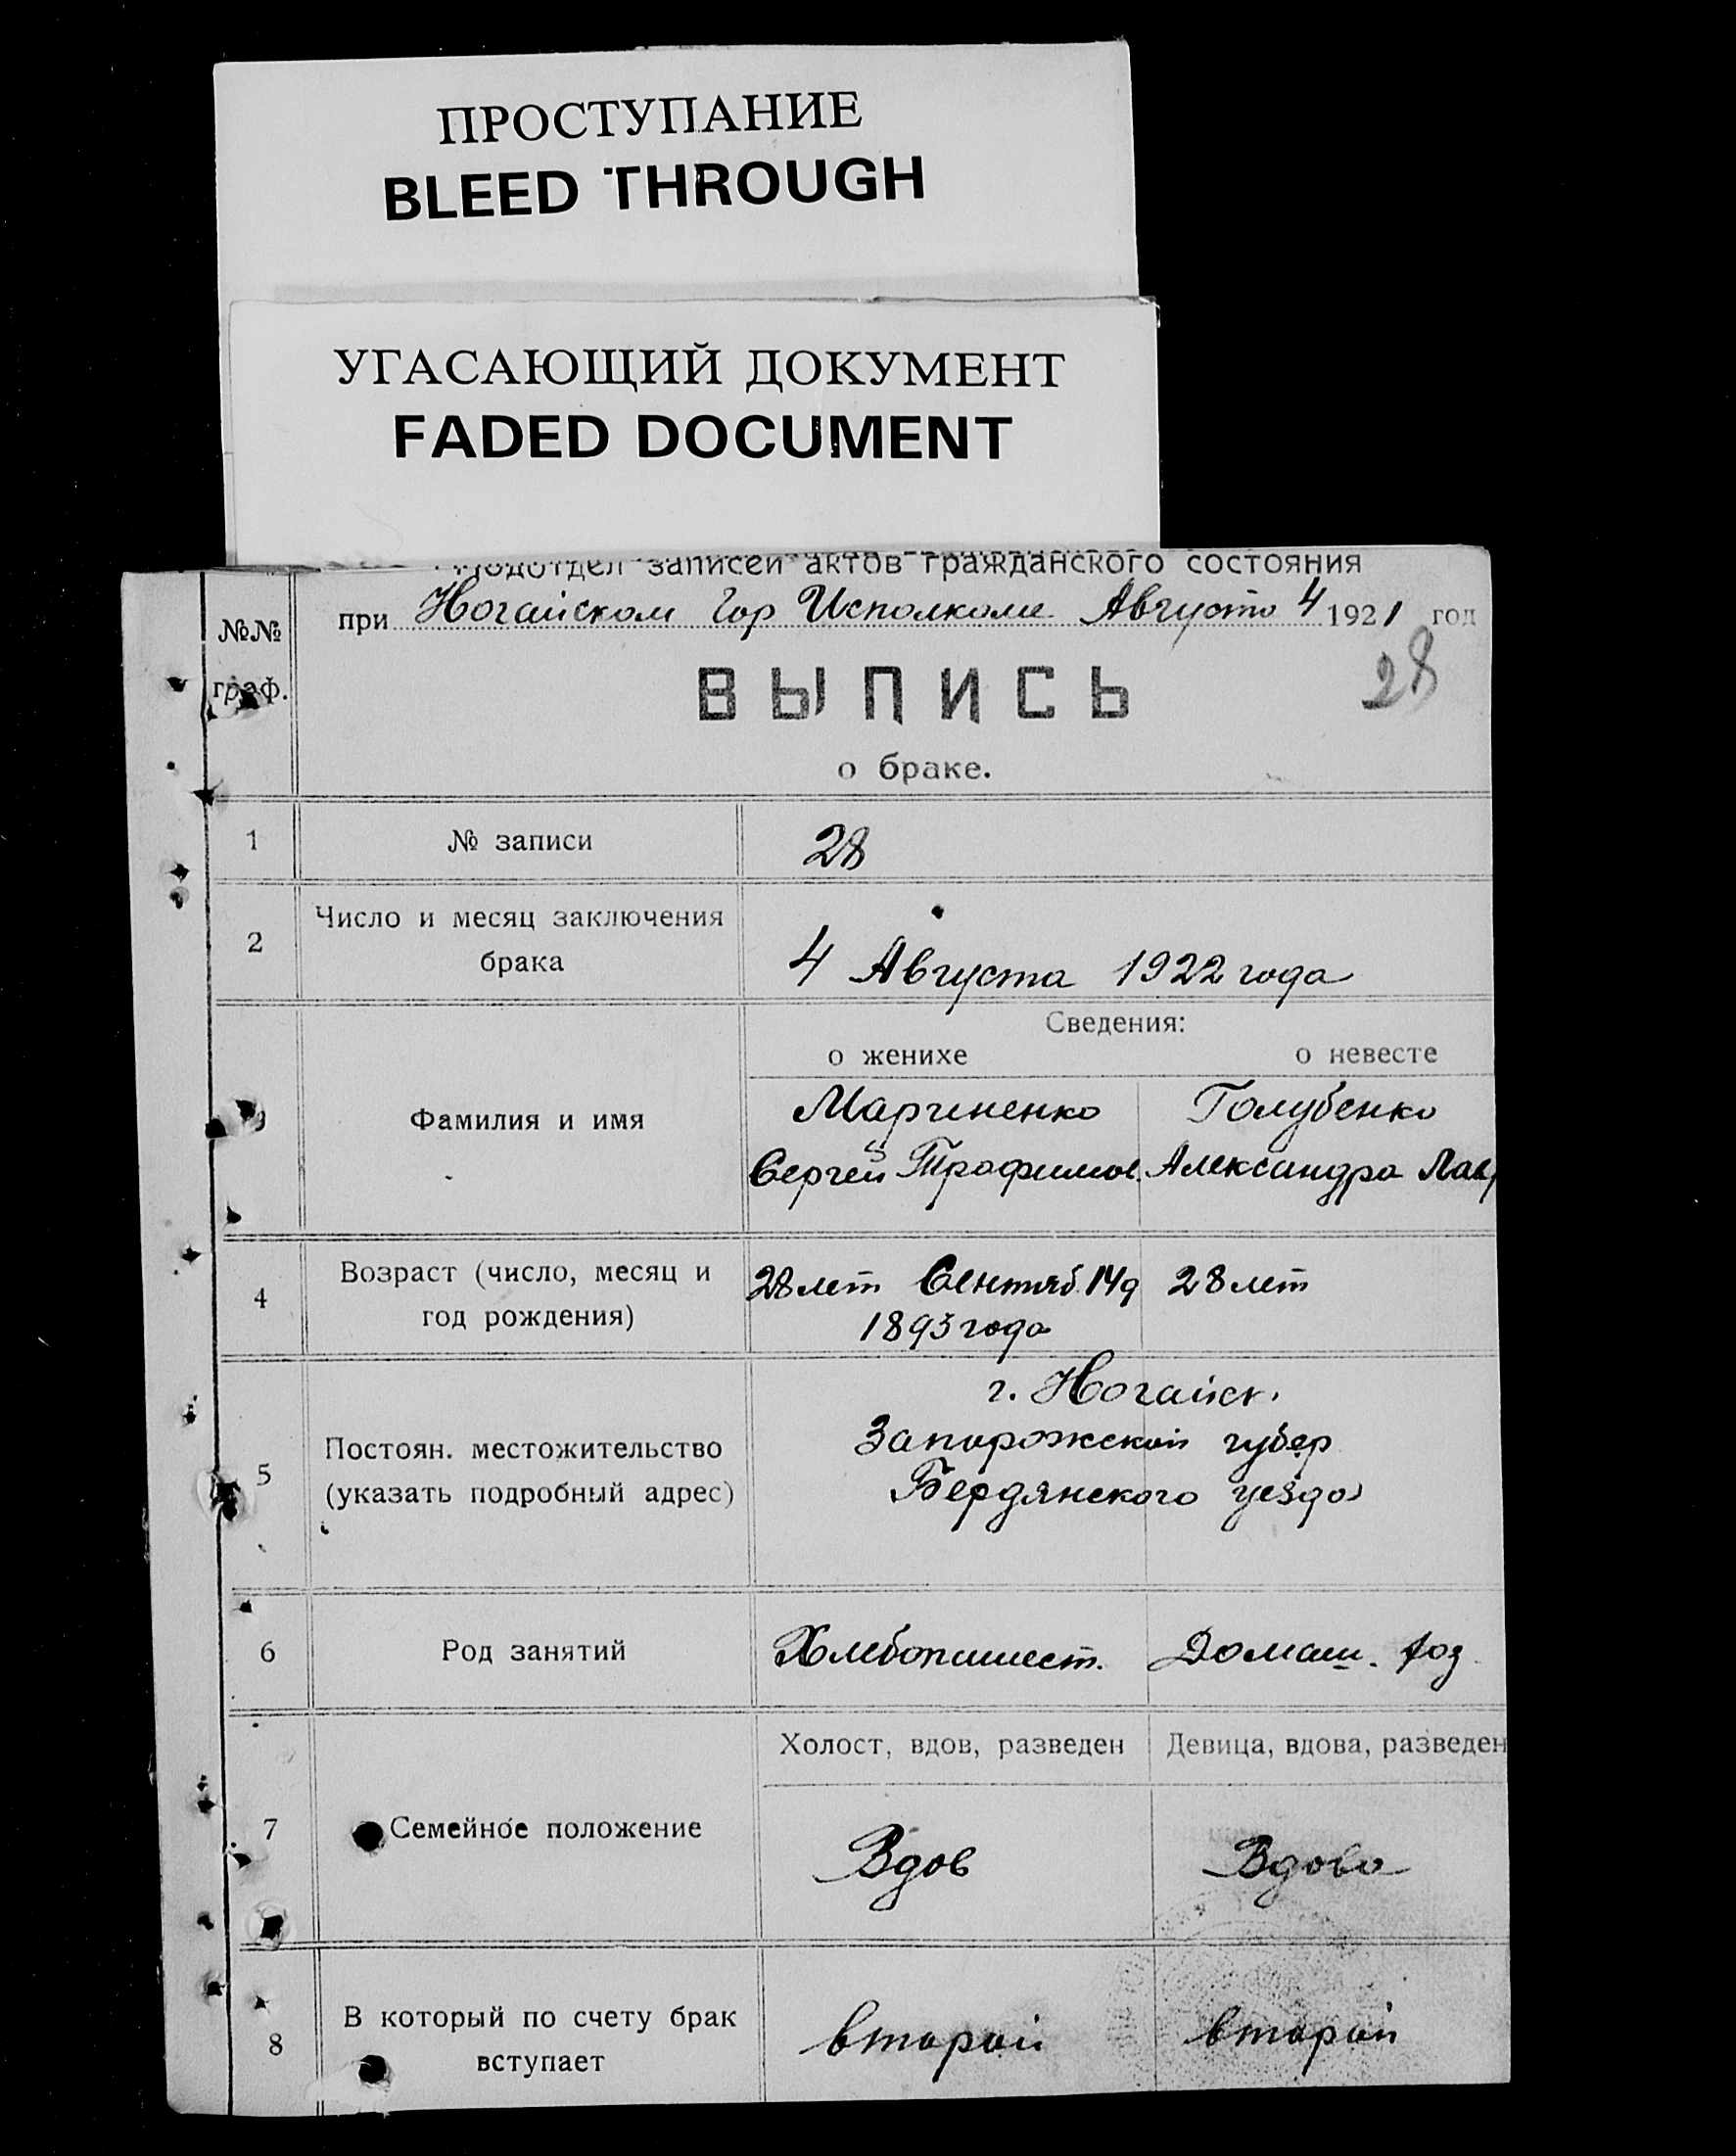 ПРОСТУПАНИЕ
BLEED THROUGH
УГАСАЮЩИЙ ДОКУМЕНТ
FADED DOCUMENT
Подотдел записей актов гражданского состояния
№№ граф.
при Ногайском Гор Исполкоме Августа 4 1921 год
28
ВЫПИСЬ
о браке.
1 № записи 28
2 Число и месяц заключения
брака 4 Августа 1922 года
Сведения:
о женихе о невесте
3 Фамилия и имя
Мариненко Голубенко
Сергей Трофимов. Александра Лавр
4 Возраст (число, месяц и
год рождения)
28 лет Сентяб. 14д 28 лет
1893 года
5 Постоян. местожительство
(указать подробный адрес)
г. Ногайск.
Запорожской губер
Бердянского уезда
6 Род занятий Хлебопашест. Домаш. хоз.
Холост, вдов, разведен Девица, вдова, разведен
7 Семейное положение Вдов Вдова
8 В который по счету брак
вступает второй второй